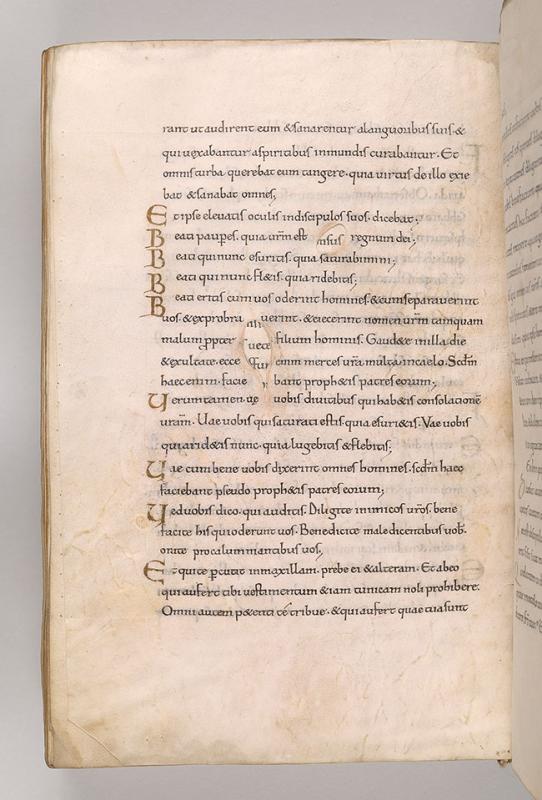 rant ut audirent eum & sanarentur a languoribus suis. &
qui uexabantur a spiritibus inmundis curabantur. Et
omnis turba querebat eum tangere. quia uirtus de illo exie
bat & sanabat omnes;
Et ipse eleuatis oculis in discipulos suos. dicebat;
Beati paup̄es. quia ur̄m est regnum dei;
Beati qui nunc esuritis. quia saturabimini;
Beati qui nunc fl&is. quia ridebitis;
Beati eritis cum uos oderint homines. & cum separauerint
uos. & exprobra uerint. & eiecerint nomen ur̄m tamquam
malum propter filium hominis. Gaud&e in illa die
& exultate. ecce enim merces ur̄a multa in caelo. Scd̄m
haec enim. facie bant proph&is patres eorum;
Uerum tamen. ue uobis diuitibus qui hab&is consolationē
uram̄. Uae uobis qui saturati estis. quia esuri&is. Vae uobis
qui rid&is nunc. quia lugebitis & flebitis;
Uae cum bene uobis dixerint omnes homines. scd̄m haec
faciebant pseudo proph&is patres eorum;
Ued uobis dico. qui auditis. Diligite inimicos ur̄os. bene
facite his qui oderunt uos. Benedicite maledicentibus uob.
orate pro calumniantibus uos;
Et qui te p̄cutit in maxillam. prebe ei & alteram. Et ab eo
qui aufert tibi uestimentum & iam tunicam noli prohibere.
Omni autem p&enti té tribue. & qui aufert quae tua sunt